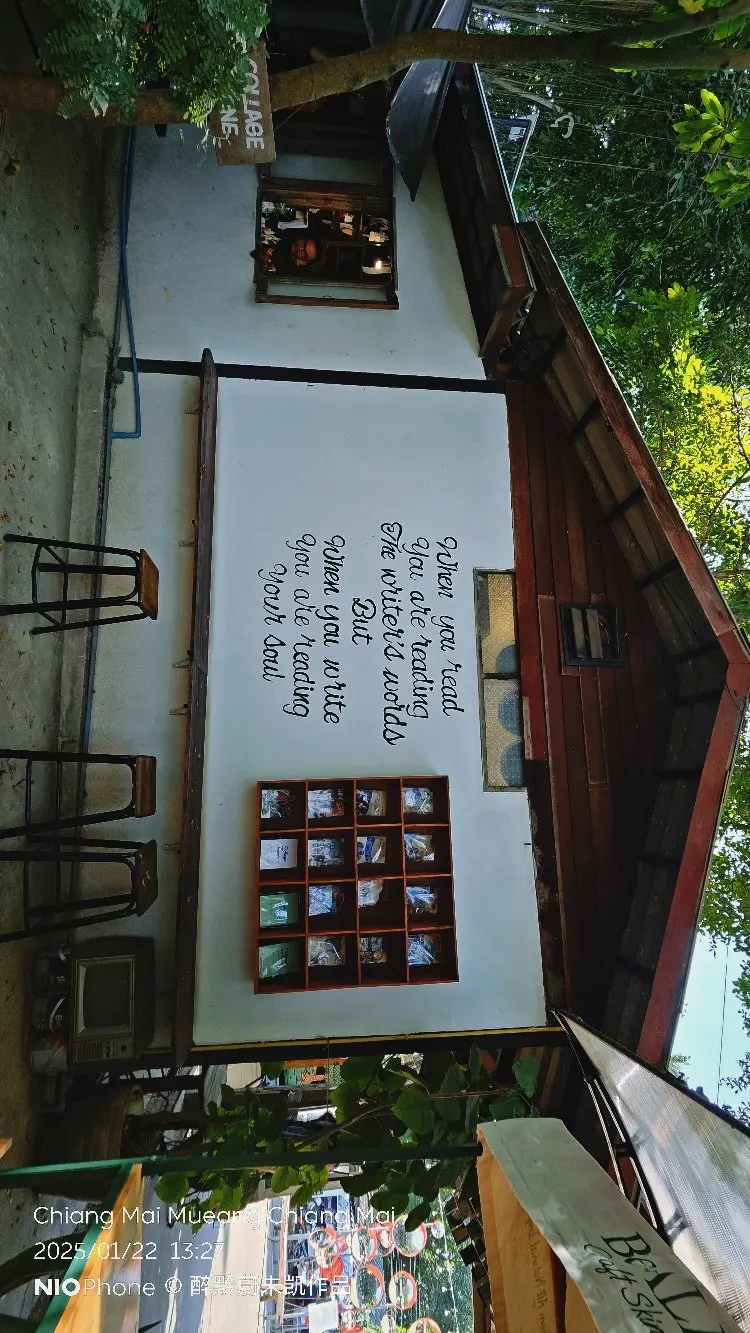 COLLAGE
NE
When you read
You are reading
The writer's words
But
When you write
You are reading
Your soul
BeALL
Craft Ski
Chiang Mai Mueang Chiang Mai
2025/01/22 13:27
NIO Phone © 醉黔翁朱凯作品